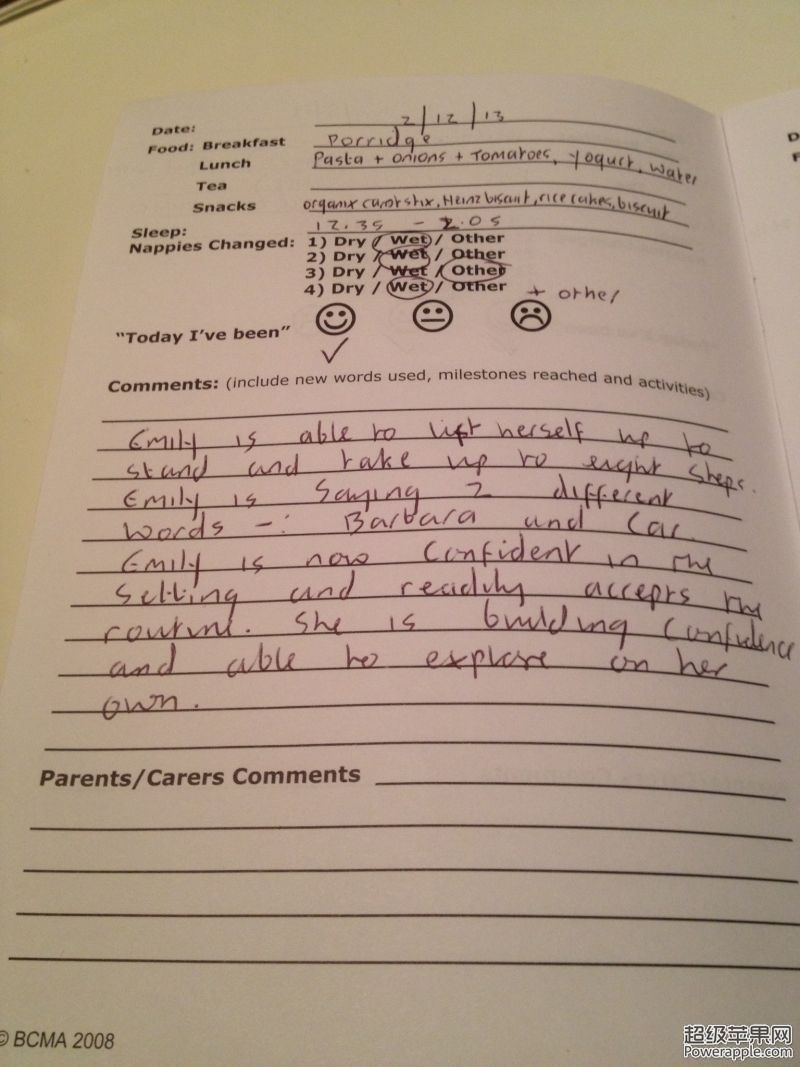 Date: 2/12/13
Food: Breakfast Porridge
Lunch Pasta + onions + Tomatoes, yogurt, water
Tea
Snacks organix carrot stix, Heinz biscuit, rice cakes, biscuit
Sleep: 12.35 - 2.05
Nappies Changed: 1) Dry / Wet / Other
2) Dry / Wet / Other
3) Dry / Wet / Other
4) Dry / Wet / Other + other
"Today I've been"
Comments: (include new words used, milestones reached and activities)
Emily is able to lift herself up to
stand and take up to eight steps.
Emily is saying 2 different
words -: Barbara and Car.
Emily is now confident in the
setting and readily accepts the
routine. She is building confidence
and able to explore on her
own.
Parents/Carers Comments
© BCMA 2008
超级苹果网
Powerapple.com